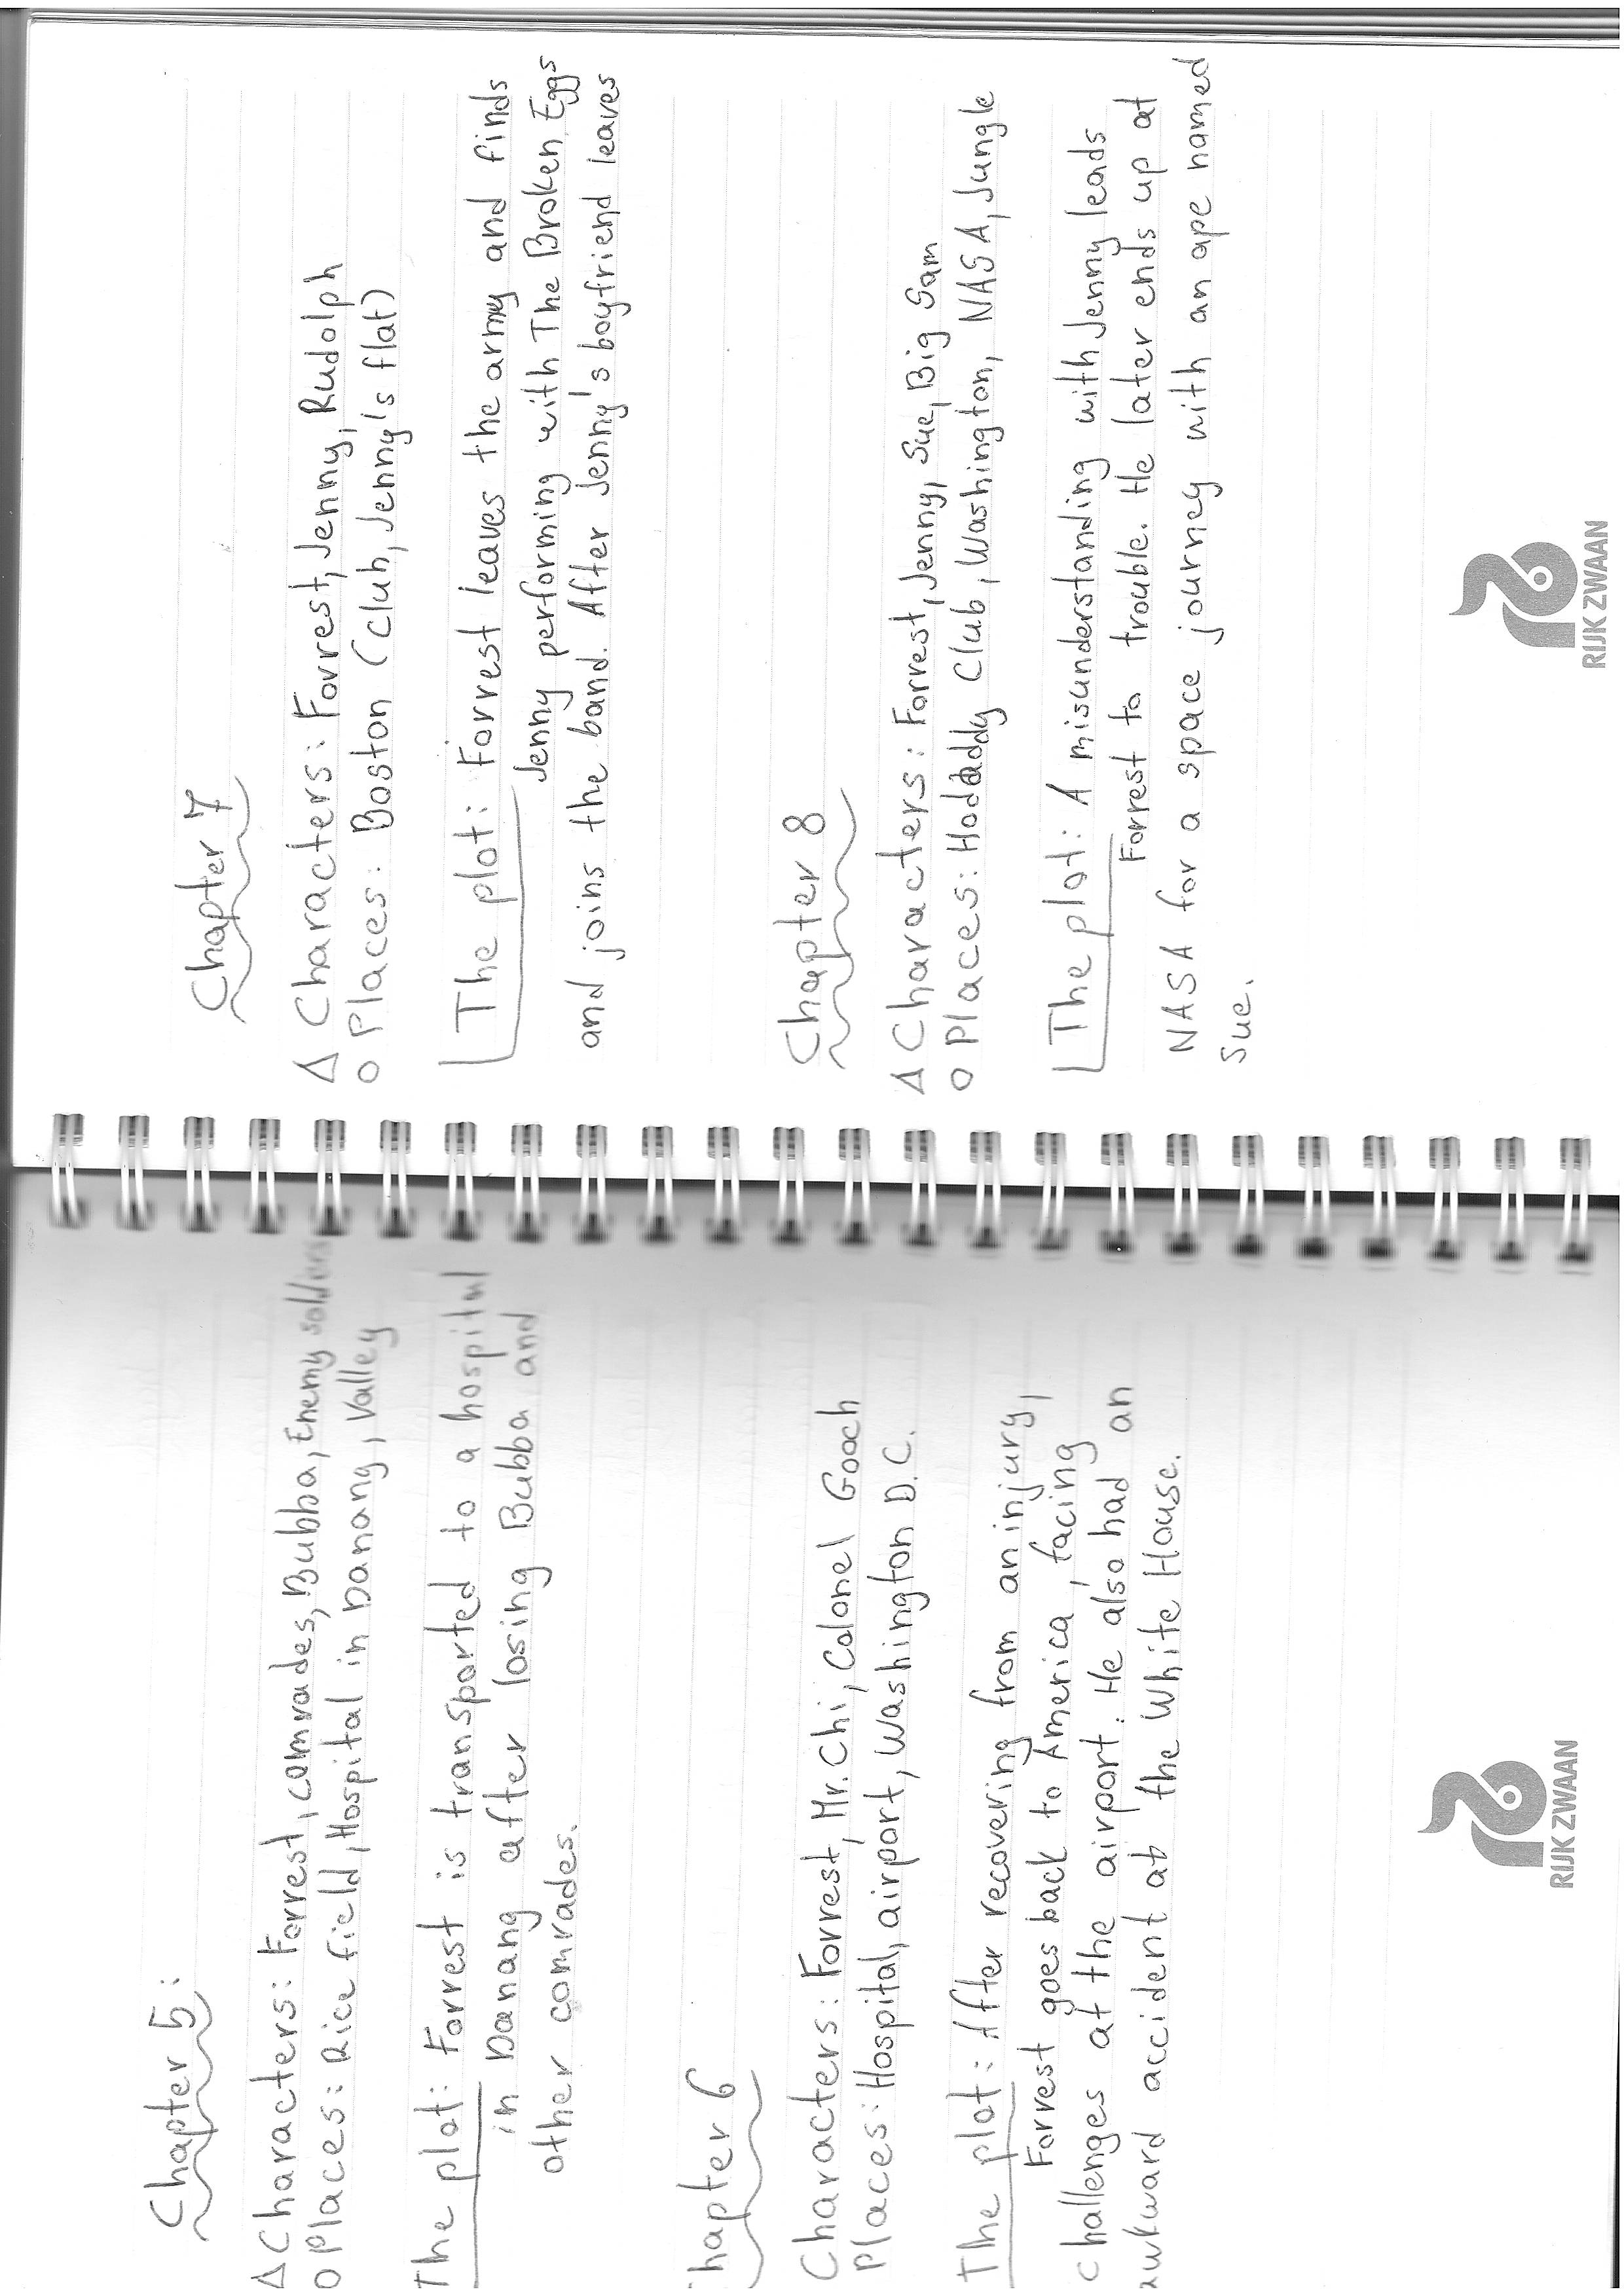 Chapter 5:
Δ Characters: Forrest, comrades, Bubba, Enemy
O Places: Rice field, Hospital in Danang, Valley
The plot: Forrest is transported to a hospital
in Danang after losing Bubba and
other comrades.
hapter 6
Characters: Forrest, Mr. Chi, Colonel Gooch
Places: Hospital, airport, Washington D.C.
The plot: After recovering from an injury,
Forrest goes back to America, facing
challenges at the airport. He also had an
awkward accident at the White House.
RIJK ZWAAN
Chapter 7
Δ Characters: Forrest, Jenny, Rudolph
O Places: Boston (Club, Jenny's flat)
The plot: Forrest leaves the army and finds
Jenny performing with The Broken Eggs
and joins the band. After Jenny's boyfriend leaves
Chapter 8
Δ Characters: Forrest, Jenny, Sue, Big Sam
O Places: Hodaddy Club, Washington, NASA, Jungle
The plot: A misunderstanding with Jenny leads
Forrest to trouble. He later ends up at
NASA for a space journey with an ape named
Sue.
RIJK ZWAAN